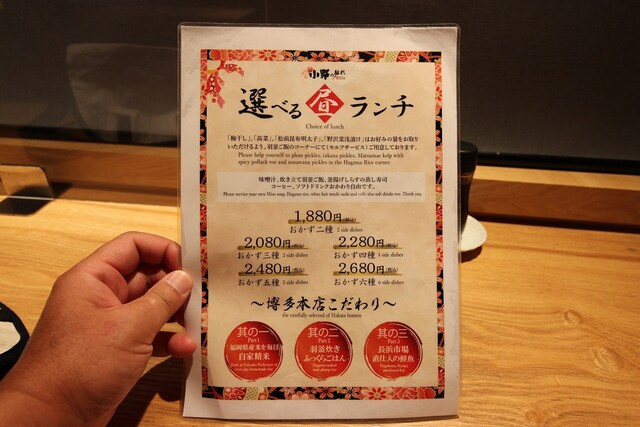 小野の離れ
選べる昼ランチ
Choice of lunch
「梅干し」、「高菜」、「松前昆布明太子」、「野沢菜浅漬け」はお好みの量をお取り
いただけるよう、羽釜ご飯のコーナーにて(セルフサービス)ご用意しております。
Please help yourself to plum pickles, takana pickles, Matsumae kelp with
spicy pollack roe and nozawana pickles in the Hagama Rice corner.
味噌汁、炊き立て羽釜ご飯、釜揚げしらすの蒸し寿司
コーヒー、ソフトドリンクおかわり自由です。
Please service your own Miso soup, Hagama rice, white bait mushi-sushi and coffe also soft drinks too. Thank you.
1,880円(税込)
おかず二種 2 side dishes
2,080円(税込) 2,280円(税込)
おかず三種 3 side dishes おかず四種 4 side dishes
2,480円(税込) 2,680円(税込)
おかず五種 5 side dishes おかず六種 6 side dishes
～博多本店こだわり～
the carefully selected of Hakata honten
其の一 其の二 其の三
Part 1 Part 2 Part 3
福岡県産米を毎日 羽釜炊き 長浜市場
自家精米 ふっくらごはん 直仕入の鮮魚